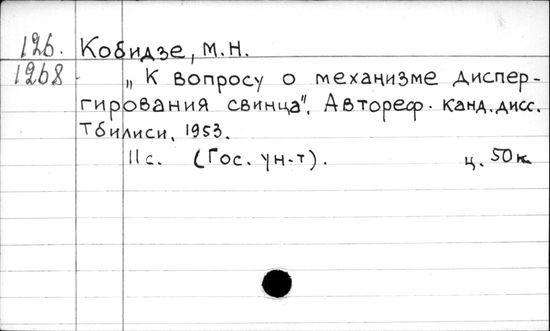 126. Кобидзе, М.Н.
1268 „К вопросу о механизме диспер-
гирования свинца". Автореф. канд. дисс.
Тбилиси, 1953.
11с. (Гос. ун-т). ц. 50к